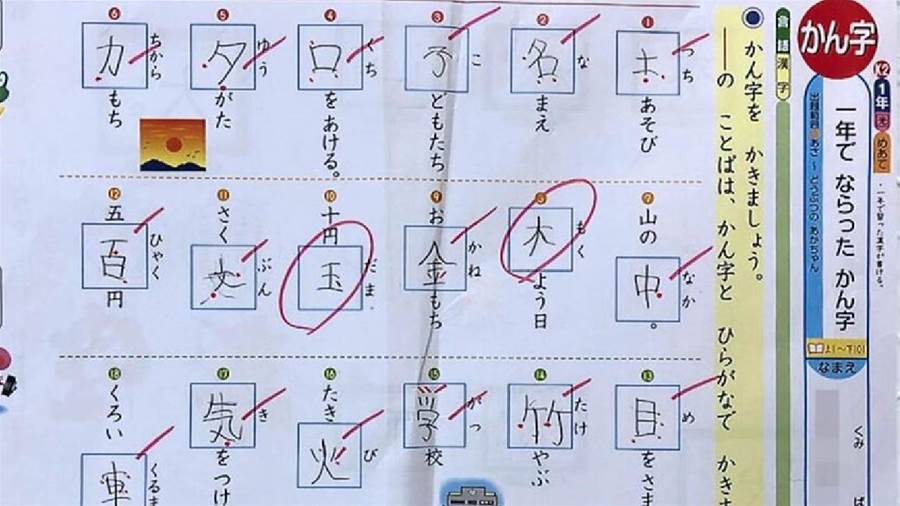 かん字
K2 1年 めあて
・一年で習った漢字が書ける。
一年で ならった かん字
出題範囲 あさ ～ どうぶつの あかちゃん
上1～下101
なまえ
くみ
ば
言語 漢字
かん字を かきましょう。
——の ことばは、かん字と ひらがなで かきま
1 土あそび つち
2 名まえ な
3 子どもたち こ
4 口をあける。 くち
5 夕がた ゆう
6 力もち ちから
7 山の中。 なか
8 木よう日 もく
9 お金もち かね
10 十円玉 だま
11 さく文 ぶん
12 五百円 ひゃく
13 目をさま め
14 竹やぶ たけ
15 学校 がっ
16 たき火 び
17 気をつけ き
18 くろい車 くるま